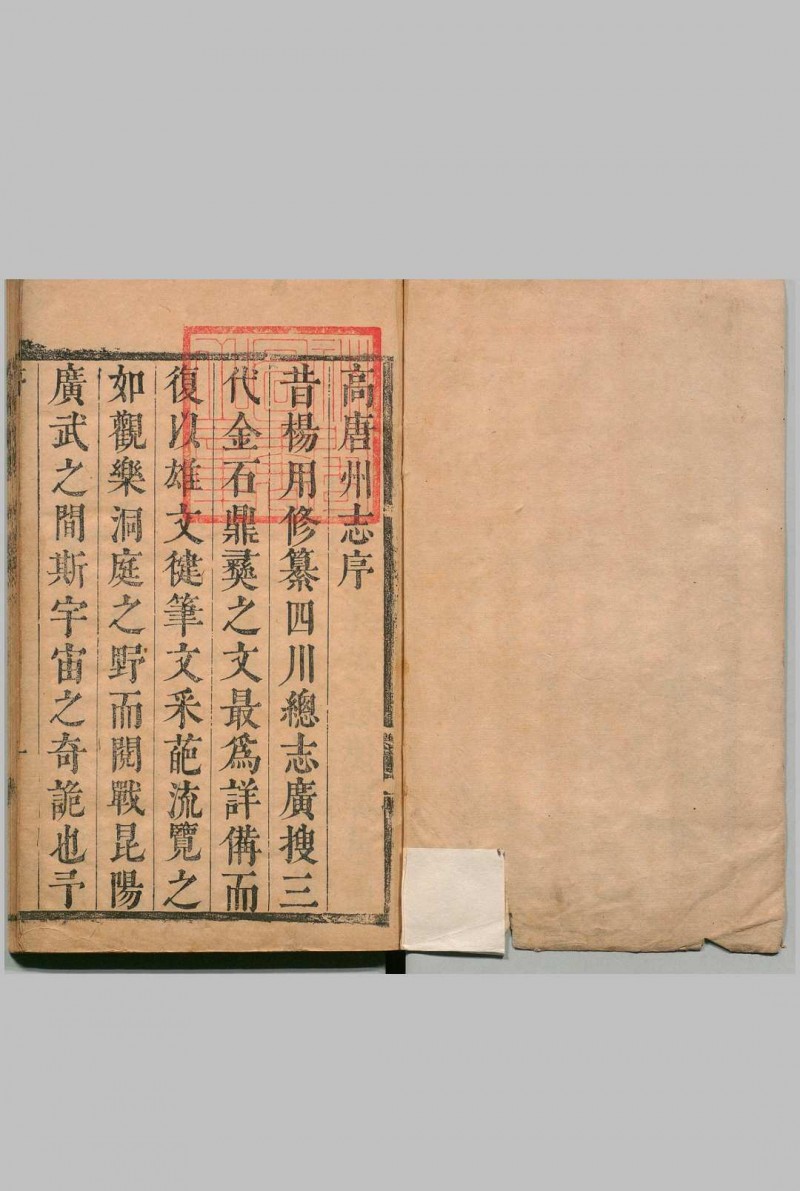 高唐州志序
昔楊用修纂四川總志廣搜三
代金石鼎彝之文最爲詳備而
復以雄文健筆文采葩流覽之
如觀樂洞庭之野而閱戰昆陽
廣武之間斯宇宙之奇詭也予